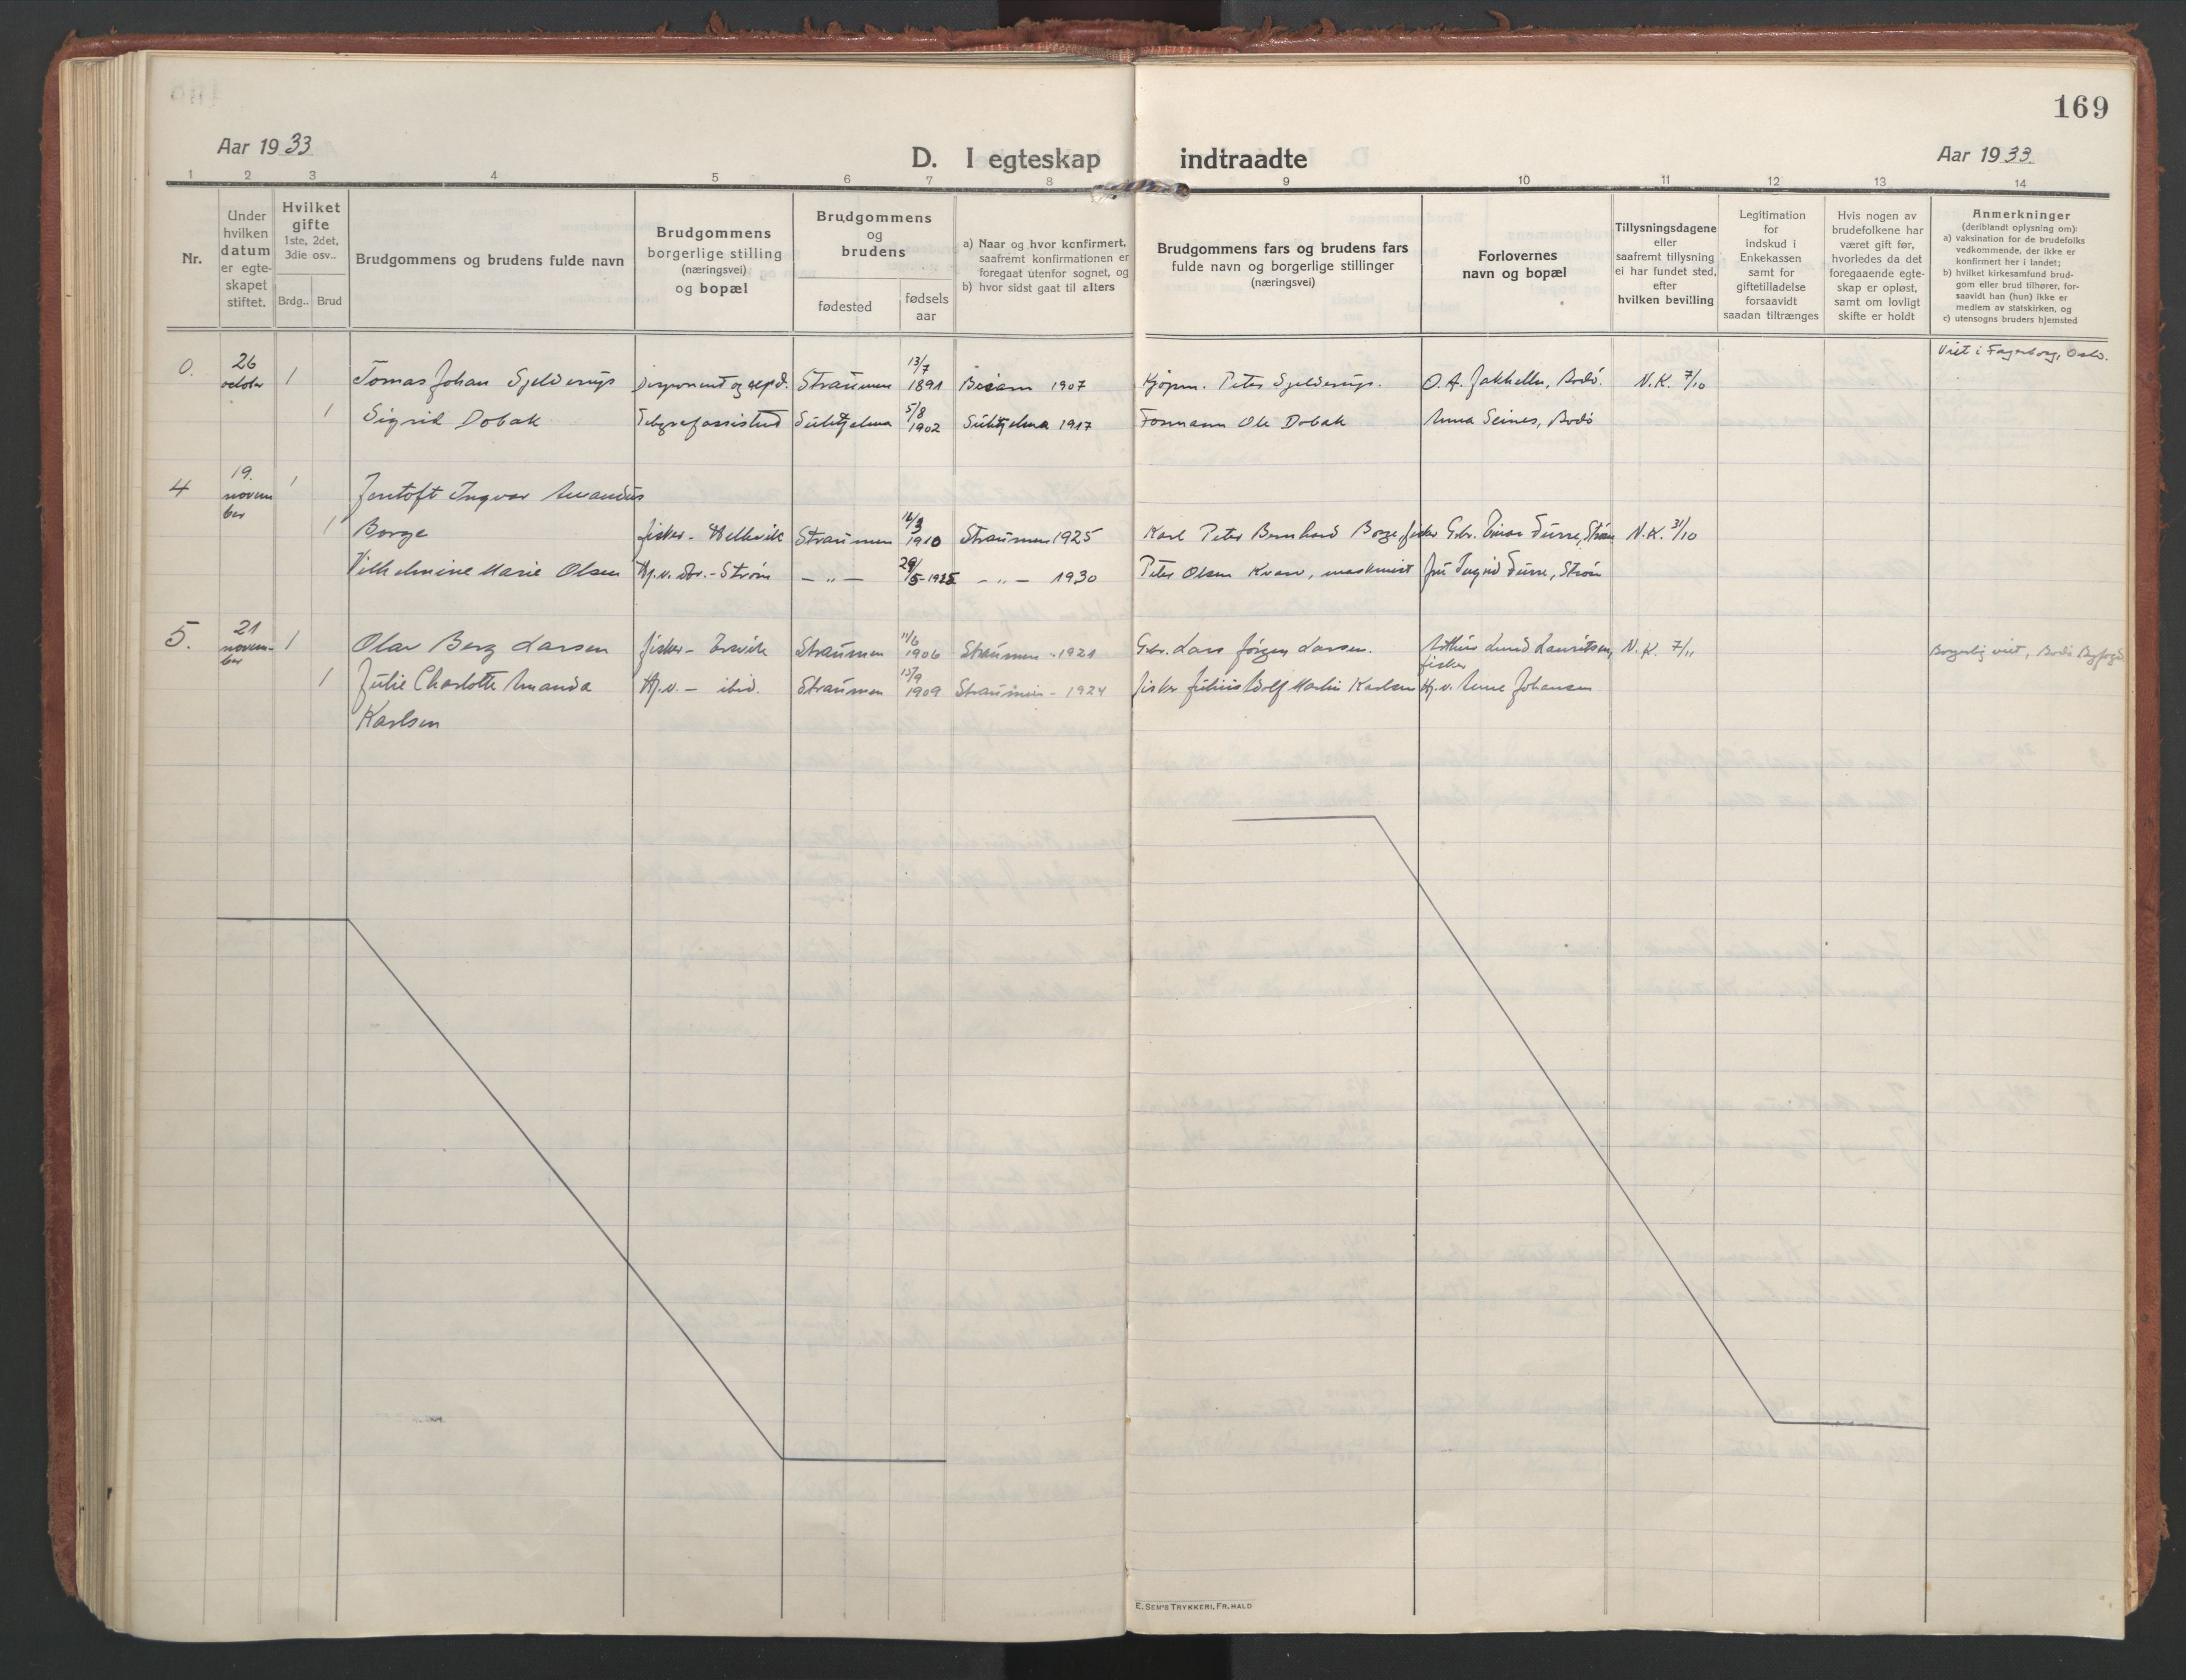 169
Aar 1933
D. I egteskap indtraadte
Aar 1933.
1 2 3 4 5 6 7 8 9 10 11 12 13 14
Nr.
Under
hvilken
datum
er egte-
skapet
stiftet.
Hvilket
gifte
1ste, 2det,
3die osv..
Brdg.. Brud
Brudgommens og brudens fulde navn
Brudgommens
borgerlige stilling
(næringsvei)
og bopæl
Brudgommens
og
brudens
fødested
fødsels
aar
a) Naar og hvor konfirmert,
saafremt konfirmationen er
foregaat utenfor sognet, og
b) hvor sidst gaat til alters
Brudgommens fars og brudens fars
fulde navn og borgerlige stillinger
(næringsvei)
Forlovernes
navn og bopæl
Tillysningsdagene
eller
saafremt tillysning
ei har fundet sted,
efter
hvilken bevilling
Legitimation
for
indskud i
Enkekassen
samt for
giftetilladelse
forsaavidt
saadan tiltrænges
Hvis nogen av
brudefolkene har
været gift før,
hvorledes da det
foregaaende egte-
skap er opløst,
samt om lovligt
skifte er holdt
Anmerkninger
(deriblandt oplysning om):
a) vaksination for de brudefolks
vedkommende, der ikke er
konfirmert her i landet;
b) hvilket kirkesamfund brud-
gom eller brud tilhører, for-
saavidt han (hun) ikke er
medlem av statskirken, og
c) utensogns bruders hjemsted
Viet i Fagerborg, Oslo.
0. 26 october 1 Tomas Johan Gjelderup Disponent og Straumen 13/7 1891 Beiarn 1907 Kjøpm. Peter Gjelderup. O. A. Jakhelln, Bodø. N.K. 7/10
1 Sigrid Dobak Telegrafassistent Sulitjelma 5/8 1902 Sulitjelma 1917 Formann Ole Dobak Anna Seines, Bodø
4 19. novem
ber 1 Jentoft Ingvar Amandus
1 Borge fisker - Straumen 1910 Straumen 1925 Karl Peter Bernhard Borge, fisker Gbr. Einar Furre, Strøm N.K. 31/10
Vilhelmine Marie Olsen Hj.v. - Strøm - " - 29/5 - " - 1930 Peter Olsen Kvarv, maskinist fru Ingrid Furre, Strøm
5. 21 novem-
ber 1 Olav Berg Larsen fisker - Straumen 11/6 1906 Straumen - 1921 Gbr. Lars Jørgen Larsen. Arthur Lund Lauritsen, fisker N.K. 7/11 Borgerlig viet, Bodø Byfogd
1 Julie Charlotte Amanda Hj.v. - ibid. Straumen 13/9 1909 Straumen - 1924 fisker Julius Adolf Martin Karlsen Hj.v. Anne Johansen
Karlsen
E. SEM'S TRYKKERI, FR.HALD